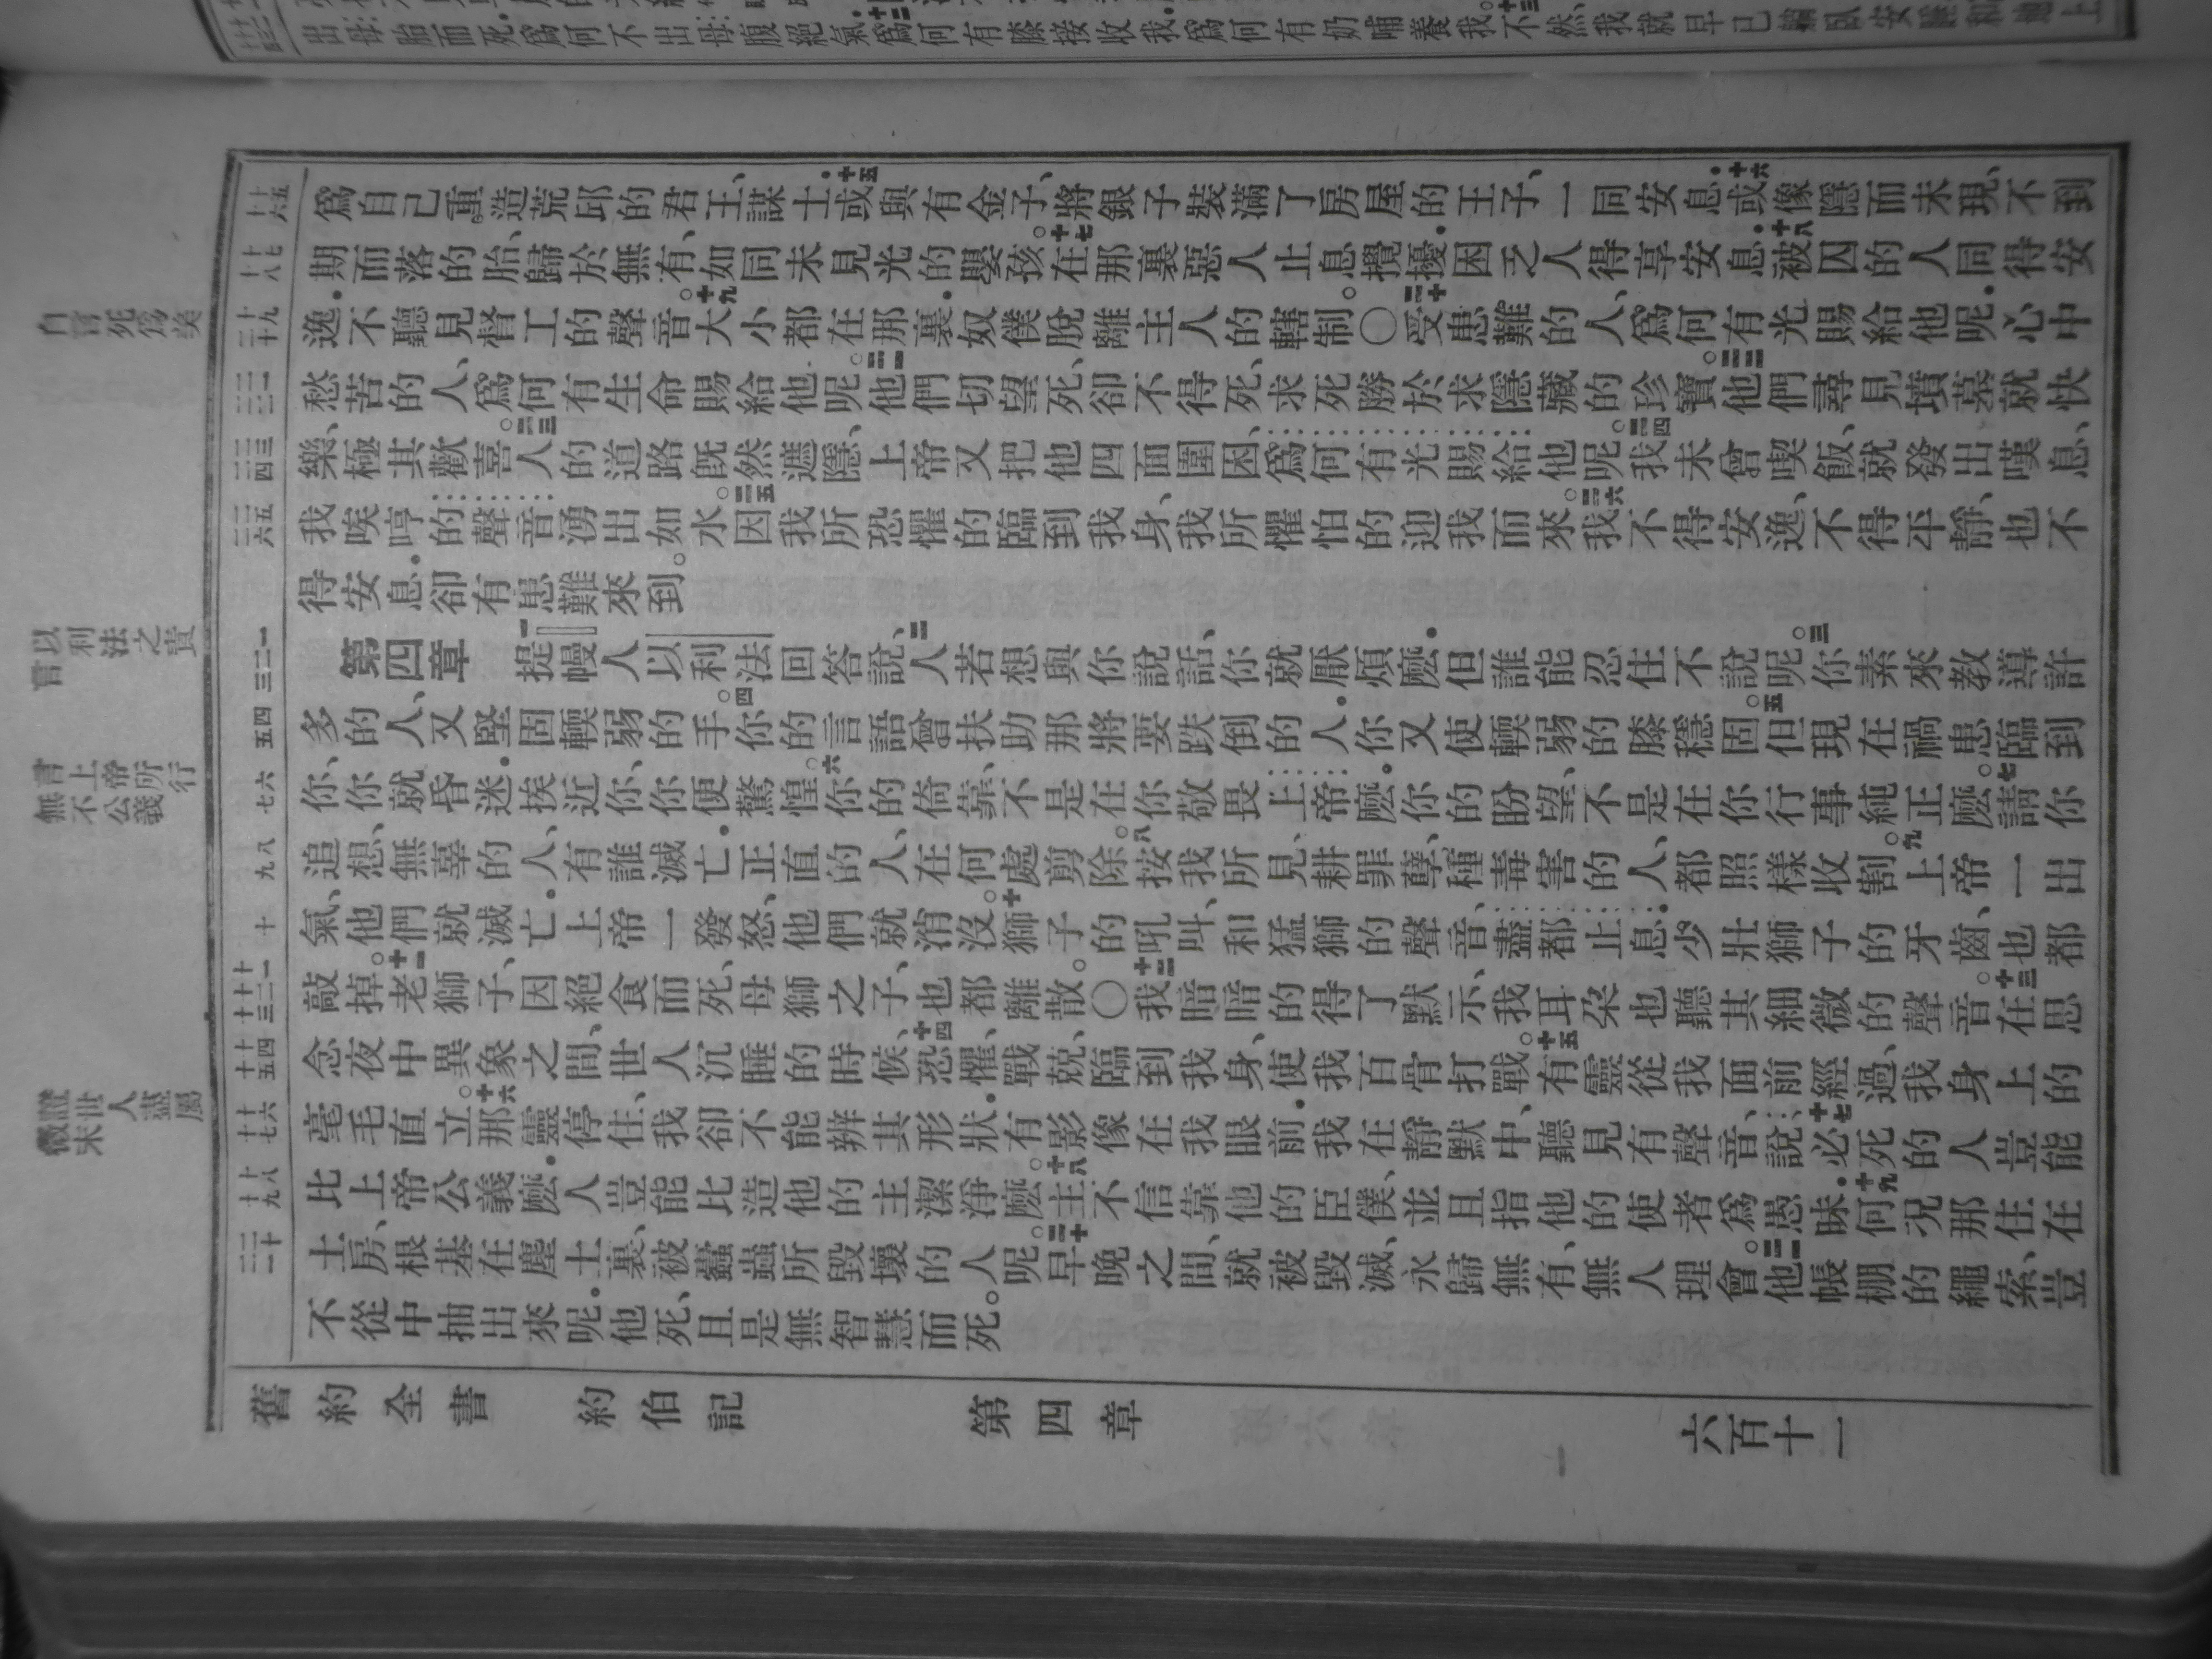 爲自己重造荒邱的君王、謀士.十五或與有金子、將銀子裝滿了房屋的王子、一同安息.十六或像隱而未現、不到
期而落的胎、歸於無有、如同未見光的嬰孩。十七在那裏惡人止息攪擾.困乏人得享安息.十八被囚的人同得安
逸.不聽見督工的聲音。十九大小都在那裏.奴僕脫離主人的轄制。〇二十受患難的人、爲何有光賜給他呢.心中
愁苦的人、爲何有生命賜給他呢。二一他們切望死、卻不得死、求死勝於求隱藏的珍寶。二二他們尋見墳墓就快
樂、極其歡喜。二三人的道路旣然遮隱、上帝又把他四面圍困、爲何有光賜給他呢。二四我未曾喫飯、就發出嘆息、
我唉哼的聲音湧出如水。二五因我所恐懼的臨到我身、我所懼怕的迎我而來。二六我不得安逸、不得平靜、也不
得安息.卻有患難來到。
第四章 一提幔人以利法回答說、二人若想與你說話、你就厭煩麼.但誰能忍住不說呢。三你素來教導許
多的人、又堅固輭弱的手。四你的言語曾扶助那將要跌倒的人.你又使輭弱的膝穩固。五但現在禍患臨到
你、你就昏迷.挨近你、你便驚惶。六你的倚靠、不是在你敬畏上帝麼.你的盼望、不是在你行事純正麼。七請你
追想、無辜的人、有誰滅亡.正直的人、在何處剪除。八按我所見、耕罪孽、種毒害的人、都照樣收割。九上帝一出
氣、他們就滅亡.上帝一發怒、他們就消沒。十獅子的吼叫、和猛獅的聲音、盡都止息.少壯獅子的牙齒、也都
敲掉。十一老獅子、因絕食而死、母獅之子、也都離散。〇十二我暗暗的得了默示、我耳朵也聽其細微的聲音。十三在思
念夜中異象之間、世人沉睡的時候、十四恐懼、戰兢、臨到我身、使我百骨打戰。十五有靈從我面前經過、我身上的
毫毛直立。十六那靈停住、我卻不能辨其形狀.有影像在我眼前.我在靜默中、聽見有聲音、說、十七必死的人豈能
比上帝公義麼.人豈能比造他的主潔淨麼。十八主不信靠他的臣僕、並且指他的使者爲愚昧.十九何況那住在
土房、根基在塵土裏、被蠹蟲所毀壞的人呢。二十早晚之間、就被毀滅、永歸無有、無人理會。二一他帳棚的繩索、豈
不從中抽出來呢.他死、且是無智慧而死。
舊約全書 約伯記 第四章 六百十一
以利法之責言
言上帝所行無不公義